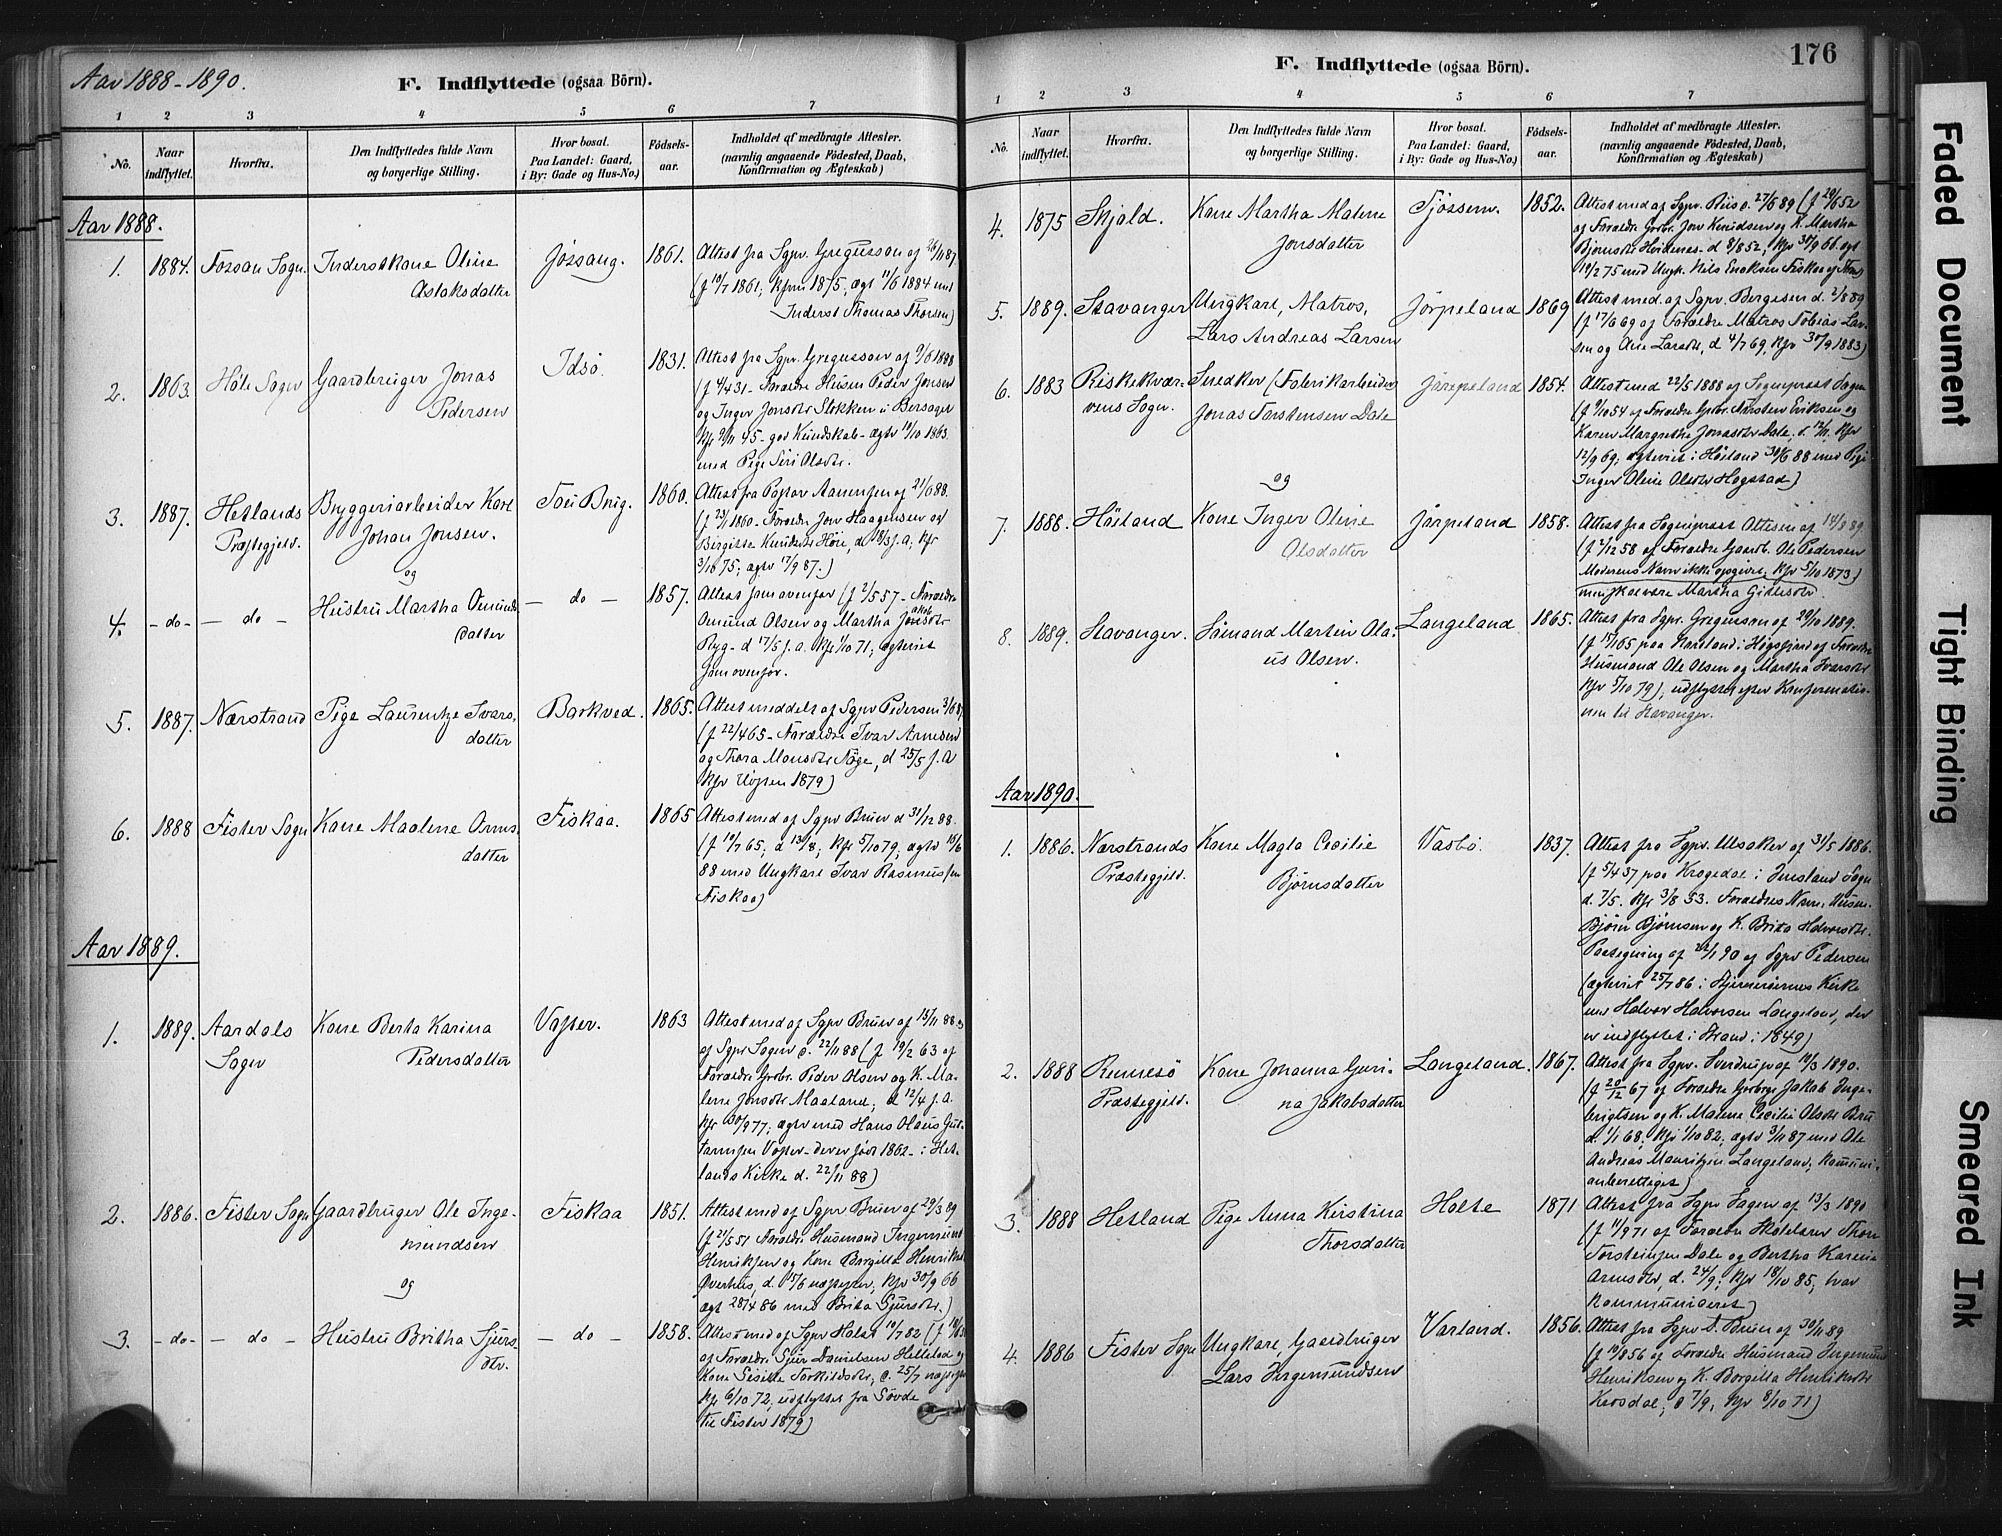 Aar 1888-1890.
F. Indflyttede (ogsaa Börn).
1 2 3 4 5 6 7
No.
Naar indflyttet.
Hvorfra.
Den Indflyttedes fulde Navn og borgerlige Stilling.
Hvor bosat. Paa Landet: Gaard, i By: Gade og Hus-No.)
Födsels-aar.
Indholdet af medbragte Attester. (navnlig angaaende Födested, Daab, Konfirmation og Ægteskab)
Aar 1888.
1. 1884. Fossan Sogn. Inderstkone Oline Aslaksdatter Jøssang. 1861.
Attest fra Sgpr. Gregusson af 26/11 87.
(f 19/7 1861, Kfm 1875, ægt 11/6 1884 med
Inderst Thomas Thorsen)
2. 1863. Høle Sogn Gaardbruger Jonas Pedersen Idsø. 1831.
Attest fra Sgpr. Gregusson af 9/6 1888
(f 4/4 31 - Foræld. Husm Peder Jonsen
og Inger Jonsdtr Stokken i Bersagel
Kfr 9/11 45 - god Kundskab - ægtv 11/10 1863
med Pige Siri Olsdtr.
3. 1887. Hetlands Præstegjeld. Bryggeriarbeider Karl Johan Jonsen. Tou Brug. 1860.
og
Attest fra Pastor Aanensen af 21/6 88.
(f 23/1 1860 - Foræld Jon Haagensen og
Birgitte Knudsdtr Høie, d 18/3 f. a; Kfr
3/10 75; ægtv 17/9 87.)
4. -do- - do - Hustru Martha Omunds datter - do - 1857.
Attest som ovenfor (f 2/5 57 - Foræld
Omund Olsen og Martha
Ryg - d 17/5 f. a. Kfr 1/10 71; ægteviet
som ovenfor.
5. 1887. Nærstrand Pige Laurentze Ivars datter Barkved. 1865.
Attest meddelt af Sgpr Pedersen
(f 22/4 65 - Foræld Ivar Arnesen
og Thora Monsdtr Tøge, d 25/5 f. a
Kfr Vossen 1879)
6. 1888 Fister Sogn Kone Maalene Orms datter Fiskaa. 1865
Attest med af Sgpr Bruun d 31/12 88.
(f 19/7 65, d 13/8; Kfr 5/10 79, ægtv 15/6
88 med Ungkarl Ivar Rasmussen
Fiskaa)
Aar 1889.
1. 1889. Aardals Sogn Kone Berta Karina Pedersdatter 1863
Attest med af Sgpr Bruun af 13/11 88 og
af Sgpr Sagen d. 22/11 88 (f 19/2 63 af
Foræld Grdbr. Peder Olsen og K. Ma-
lene Jonsdtr Maaland; d 12/4 f. a.
Kfr 30/9 77; ægtv med Hans Olaus Gut-
tormsen - der er født 1862 - i Het-
lands Kirke d. 22/11 88)
2. 1886. Fister Sogn Gaardbruger Ole Inge- mundsen Fiskaa 1851.
og
Attest med af Sgpr Bruun af 29/3 89
(f 21/5 51 Foræld Husmand Ingemund
Henriksen og Kone Borgilla Henriksd
Øverhus, d. 15/6 næstefter, Kfr 30/9 66
ægt 28/4 86 med Brita Sjursdtr.)
3. -do- - do - Hustru Britha Sjurs- dtr. - do - 1858.
Attest med af Sgpr Holst 19/7 82
af Foræld Sjur Danielsen Helleland og
Kone Sisille Torkildsdtr, d. 25/7
Kfr 6/10 72, udflyttet fra Søvde
til Fister 1879)
176
F. Indflyttede (ogsaa Börn).
1 2 3 4 5 6 7
No.
Naar indflyttet.
Hvorfra.
Den Indflyttedes fulde Navn og borgerlige Stilling.
Hvor bosat. Paa Landet: Gaard, i By: Gade og Hus-No.)
Födsels-aar.
Indholdet af medbragte Attester. (navnlig angaaende Födested, Daab, Konfirmation og Ægteskab)
4. 1875 Skjold. Kone Martha Malene Jonsdatter Tjøssem. 1852.
Attest med af Sgpr. Riis d. 27/6 89 (f 29/6 52
af Foræld Grdbr. Jon Knudsen og K. Martha
Bjørnsdtr d 8/8 52, Kfr 30/9 66. ægt
19/2 75 med Ungk. Nils Eriksen Fiskaa)
5. 1889. Stavanger Ungkarl, Matros, Lars Andreas Larsen Jørpeland 1869
Attest med. af Sgpr. Børgesen d. 2/8 89
(f 17/6 69 af Forældre Matros Tobias Lar-
sen og Oline Larsdtr, d 4/7 69, Kfr 30/9 1883)
6. 1883 Riskekvær- vens Sogn. Snedker (Fabrikarbeider Jonas Torstensen Dale Jørpeland 1854.
og
Attest med 22/5 1888 af Sognepræst Sagen
(f 9/10 54 af Foræld Grdbr. Torsten Eriksen og
Karen Margrethe Jonasdtr Dale. d. 12/11. Kfr
12/9 69; ægteviet i Høiland 30/6 88 med Pige
Inger Oline Olsdtr Hogstad)
7. 1888. Høiland Kone Inger Oline Olsdatter Jørpeland 1858.
Attest fra Sognepræst Ottesen af 14/8 89.
(f 2/12 58 af Forældre Gaardb. Ole Pedersen
Moderens Navn ikke opgivet; Kfr 5/10 1873)
Martha Gitlesdtr.
8. 1889. Stavanger. Sømand Martin Ola- us Olsen. Langeland 1865.
Attest fra Sgpr. Gregusson af 29/10 1889.
(f 15/1 65 paa i Høgsfjord af Foræld
Husmand Ole Olsen og Martha Ivarsdtr
Kfr 5/10 79), udflyttet efter Konfirmatio-
nen til Stavanger.
Aar 1890.
1. 1886. Nærstrands Præstegjeld. Kone Magla Cecilie Bjørnsdatter Vasbø. 1837.
Attest fra Sgpr. Ulsaker af 31/5 1886.
(f 5/4 37 paa Krogedal i Jensland Sogn
d. 7/5. Kfr 3/8 53. Forældres Navn, Husm.
Bjørn Bjørnsen og K. Brita Halvorsdtr.
Paategning af 22/1 90 af Sgpr Pedersen
(ægteviet 25/7 86 i Sjernerøernes Kirke
med Halvor Halvorsen Langeland, der
er indflyttet i Strand i 1849)
2. 1888 Rennesø Præstegjeld. Kone Johanna Guri- na Jakobsdatter Langeland. 1867.
Attest fra Sgpr. Sverdrup af 19/3 1890.
(f 20/12 67 af Foræld Grdbrgr Jakob Inge-
brigtsen og K. Malene Cecilie Olsdtr Bru
d. 1/1 68; Kfr 1/10 82, ægtv 3/11 87 med Ole
Andreas Mauritzen Langeland, kommuni-
onberettiget)
3. 1888 Hetland Pige Anna Kirstina Thorsdatter Holte 1871
Attest fra Sgpr Sagen af 13/3 1890
(f 11/9 71 af Foræld Skolelærer Thor
Torsteinsen Dale og Bertha Karine
Arnesdtr, d. 24/9; Kfr 18/10 85, hvar
kommuniceret)
4. 1886 Fister Sogn Ungkarl, Gaardbruger Lars Ingemundsen Varland. 1856.
Attest fra Sgpr D. Bruun af 30/11 89
(f 19/8 56 af Foræld Husmand Ingemund
Henriksen og K. Borgilla Henriksdtr
d 7/9, Kfr 8/10 71)
Faded Document
Tight Binding
Smeared Ink